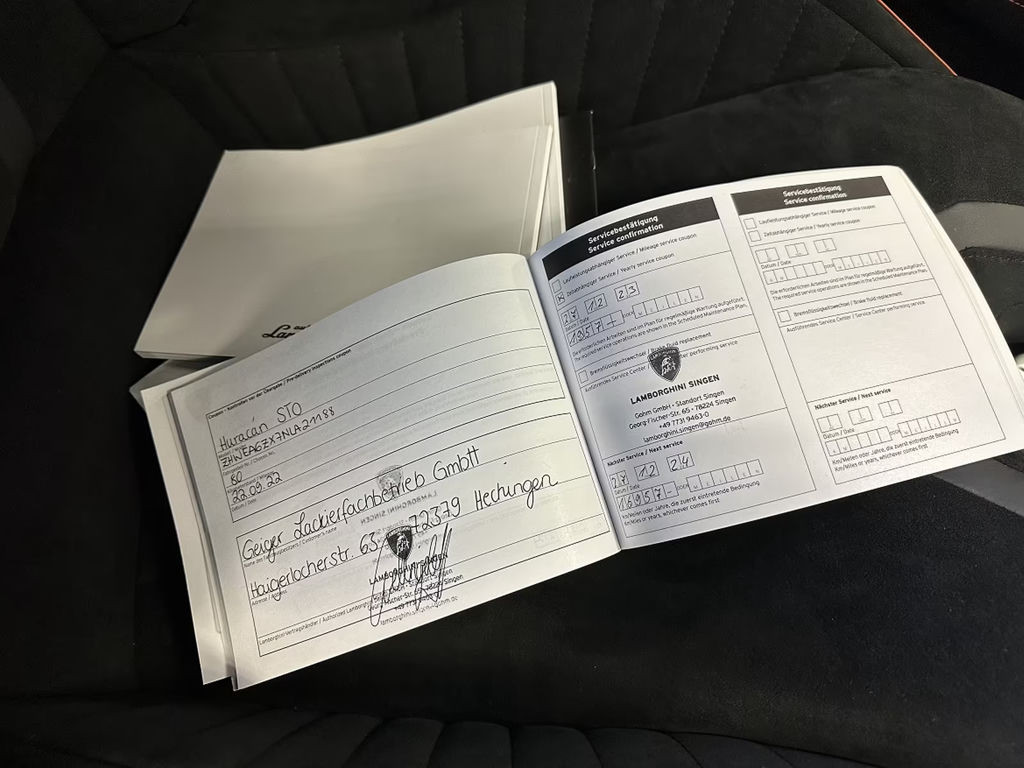 Coupon - Kontrollen vor der Übergabe / Pre-delivery inspections coupon
Huracán STO
ZHWEA6ZX7NLA21188
Fahrgestell-Nr. / Chassis No.
60
22.09.22
Datum / Date
Geiger Lackierfachbetrieb GmbH
Haigerlocherstr. 63 72379 Hechingen
Adresse / Address
LAMBORGHINI SINGEN
+49 7731 9463-0
lamborghini.singen@gohm.de
Servicebestätigung
Service confirmation
Laufleistungsabhängiger Service / Mileage service coupon
x Zeitabhängiger Service / Yearly service coupon
27 12 23
Datum / Date
1957
Die erforderlichen Arbeiten sind im Plan für regelmäßige Wartung aufgeführt.
The required service operations are shown in the Scheduled Maintenance Plan.
Bremsflüssigkeitswechsel / Brake fluid replacement
Ausführendes Service Center / Service Center performing service
LAMBORGHINI SINGEN
Gohm GmbH - Standort Singen
Georg Fischer-Str. 65 - 78224 Singen
+49 7731 9463-0
lamborghini.singen@gohm.de
Nächster Service / Next service
27 12 24
Datum / Date
16957
Km/Meilen oder Jahre, die zuerst eintretende Bedingung
Km/Miles or years, whichever comes first
Servicebestätigung
Service confirmation
Laufleistungsabhängiger Service / Mileage service coupon
Zeitabhängiger Service / Yearly service coupon
Datum / Date
Die erforderlichen Arbeiten sind im Plan für regelmäßige Wartung aufgeführt.
The required service operations are shown in the Scheduled Maintenance Plan.
Bremsflüssigkeitswechsel / Brake fluid replacement
Ausführendes Service Center / Service Center performing service
Nächster Service / Next service
Datum / Date
Km/Meilen oder Jahre, die zuerst eintretende Bedingung
Km/Miles or years, whichever comes first